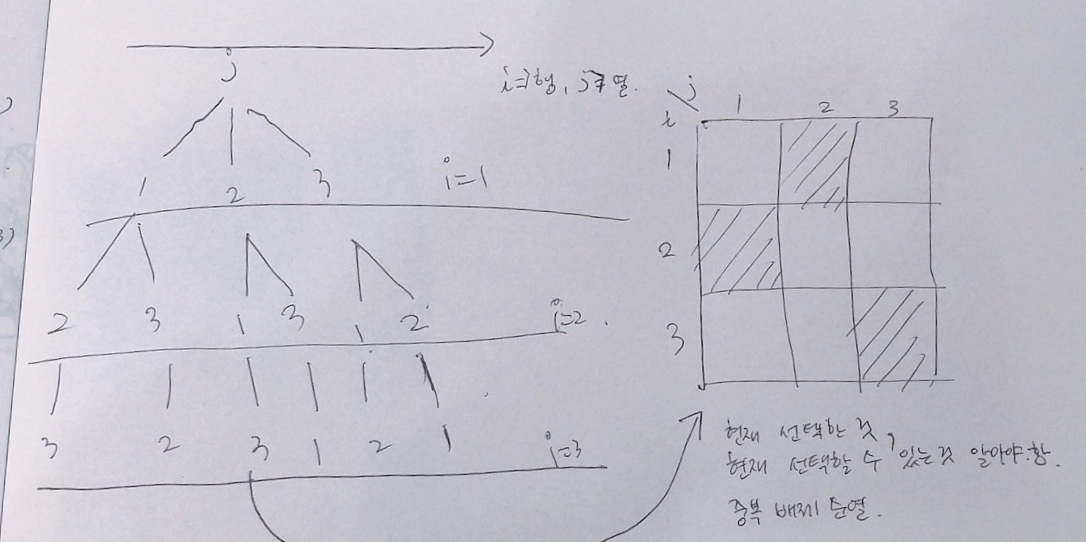 j
i=행, j=열.
1 2 3 i=1
2 3 1 3 1 2 i=2.
3 2 3 1 2 1 i=3
j
i
1 2 3
1
2
3
현재 선택한 것,
현재 선택할 수 있는것 알아야함.
중복 배제 순열.